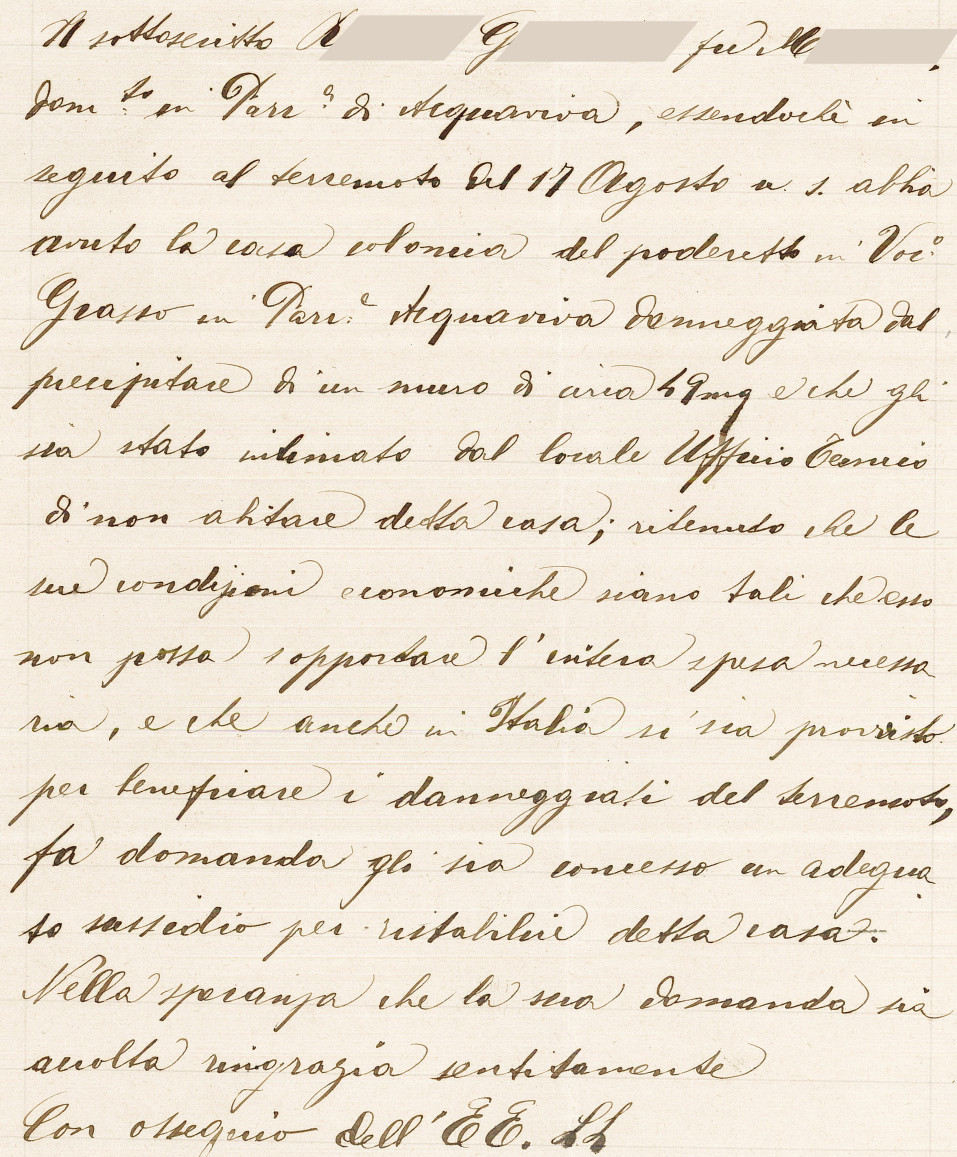 Il sottoscritto R G fu M ,
dom.to in Parr.a di Acquaviva, essendochè in
seguito al terremoto del 17 Agosto u. s. abbia
avuto la casa colonica del poderetto in Voc.o
Grasso in Parr.a Acquaviva danneggiata dal
precipitare di un muro di circa 49mq e che gli
sia stato intimato dal locale Ufficio Tecnico
di non abitare detta casa; ritenuto che le
sue condizioni economiche siano tali che esso
non possa sopportare l'intera spesa necessa
ria, e che anche in Italia si sia provvisto
per beneficiare i danneggiati del terremoto,
fa domanda gli sia concesso un adegua
to sussidio per ristabilire detta casa.
Nella speranza che la sua domanda sia
accolta ringrazia sentitamente
Con ossequio dell'EE. LL